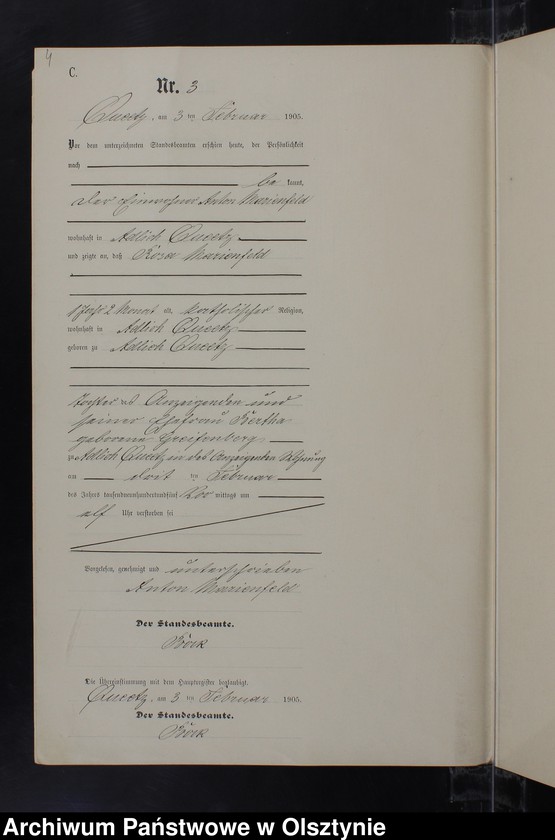 4
C.
Nr. 3
Queetz, am 3 ten Februar 1905.
Vor dem unterzeichneten Standesbeamten erschien heute, der Persönlichkeit
nach
be kannt,
der Einwohner Anton Marienfeld
wohnhaft in Adlich Queetz
und zeigte an, daß Rosa Marienfeld
1 Jahr 2 Monat alt, katholischer Religion,
wohnhaft in Adlich Queetz
geboren zu Adlich Queetz
Tochter des Anzeigenden und
seiner Ehefrau Bertha
geborene Greifenberg
zu Adlich Queetz in des Anzeigenden Wohnung
am drei ten Februar
des Jahres tausendneunhundertfünf Vor mittags um
elf Uhr verstorben sei
Vorgelesen, genehmigt und unterschrieben
Anton Marienfeld
Der Standesbeamte.
Die Übereinstimmung mit dem Hauptregister beglaubigt.
Queetz, am 3 ten Februar 1905.
Der Standesbeamte.
Archiwum Państwowe w Olsztynie